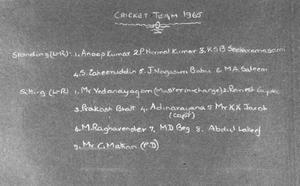 CRICKET TEAM 1965
Standing (L-R) 1. Anoop Kumar 2. P. Nirmal Kumar 3. K.S.B
4. S. Zaheeruddin 5. J Nagasim Babu 6 M.A Saleem
Sitting (L-R) 1. Mr Vedanayagam (Master incharge) 2. Ramesh Gupta
3. Prakash Bhatt 4. Adinarayana 5 Mr K.K Jacob
(capt)
6. M. Raghavender 7. M.D Beg 8. Abdul
9. Mr. C. (P.D)